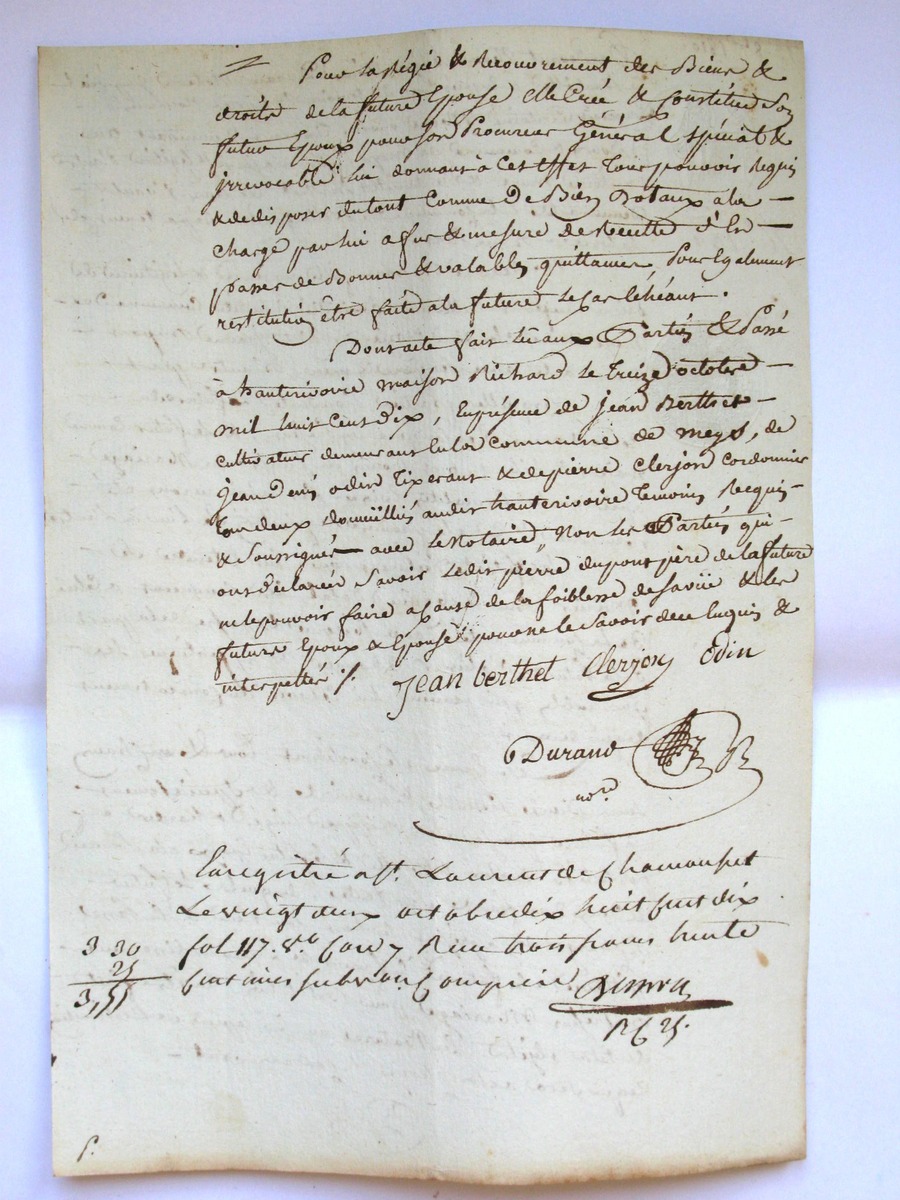 Pour la Régie & Recouvrement des Biens &
droits de la future Epouse elle Crée & Constitue Son
futur Epoux pour son Procureur Général spécial &
irrevocable lui donnant à Cet effet tous pouvoir Requis
& de disposer du tout Comme De Bien Dotaux à la
Charge par lui a fur & mesure de Recette d'En
passer de Bonnes & valables quittances Pour également
restitution être faite a la future le Cas échéant.
Dont acte fait lû aux Parties & Passé
à hauterivoire maison Richard le treize octobre
mil huit Cent dix, En présence de Jean Berthet
Cultivateur demeurant en la Commune de meys, de
Jean Denis odin Tixerant & de pierre Clerjon Cordonnier
tous deux domiciliés audit hauterivoire temoins Requis
& Soussignés avec le Notaire, Non les Parties qui
ont déclarés Savoir Ledit pierre dupont père de la future
ne le pouvoir faire a Cause de la foiblesse de sa vüe & les
futurs Epoux & Epouse pour ne le Savoir de ce Enquis &
interpellés ./.
Jean berthet Clerjon Odin
Durand
no.re
Enregistré a St. Laurent de Chamousset
Le vingt deux octobre dix huit Cent dix
fol 117. Vo. Case 7 Reçu trois francs trente
Centimes subvention Comprise
3 30
25
3,55
R C 25.